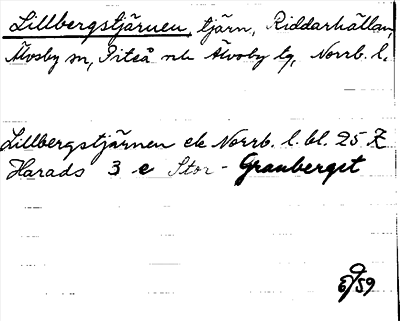 Lillbergstjärnen, tjärn, Riddarhällan,
Älvsby sn, Piteå Älvsby lg, Norrb. l.
Lillbergstjärnen ek Norrb. l. bl. 25 Z
Harads 3 e Stor-Granberget
/59